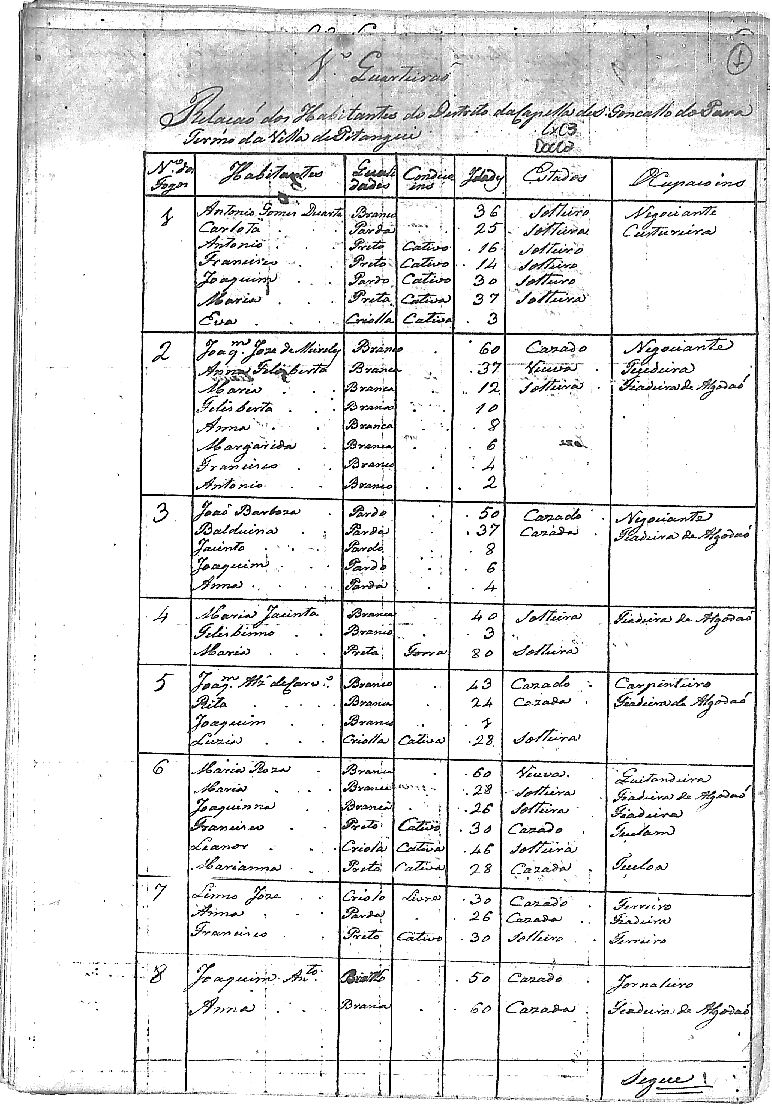 1
Nº Quarteirão
Relação dos Habitantes do Districto da Capella de S. Goncallo do Para
Termo da Villa de Pitangui
Cx 03
Doc 10
N.ºs dos Fogos Habitantes Quali dades Condicoe ins Idady Estados Ocupacoins
1 Antonio Gomes Duarte Branco 36 Solteiro Negociante
Carlota Parda 25 Solteira Custureira
Antonio Preto Cativo 16 Solteiro
Francisco Preto Cativo 14 Solteiro
Joaquim Pardo Cativo 30 Solteiro
Maria Preta Cativa 37 Solteira
Eva Criolla Cativa 3
2 Joaq.m Joze de Branco 60 Cazado Negociante
Anna Felisberta Branca 37 Viuva Tecedeira
Maria Branca 12 Solteira Fiadeira de Algodaó
Felisberta Branca 10
Anna Branca 8
Margarida Branca 6
Francisco Branco 4
Antonio Branco 2
3 Joaó Barboza Pardo 50 Cazado Negociante
Balduina Parda 37 Cazada Fiadeira de Algodaó
Jacinto Pardo 8
Joaquim Pardo 6
Anna Parda 4
4 Maria Jacinta Branca 40 Solteira Fiadeira de Algodaó
Felisbinno Branco 3
Maria Preta Forra 80 Solteira
5 Joaq.m Alz' de Carv.º Branco 43 Cazado Carpinteiro
Rita Branca 24 Cazada Fiadeira de Algodaó
Joaquim Branco 1
Luzia Criolla Cativa 28 Solteira
6 Maria Roza Branca 60 Viuva Quitandeira
Maria Branca 28 Solteira Fiadeira de Algodaó
Joaquinna Branca 26 Solteira Fiadeira
Francisco Preto Cativo 30 Cazado
Leanor Criola Cativa 46 Solteira
Marianna Preta Cativa 28 Cazada
7 Linno Joze Criolo Livre 30 Cazado Ferreiro
Anna Parda 26 Cazada Fiadeira
Francisco Preto Cativo 30 Solteiro Ferreiro
8 Joaquim An.to 50 Cazado Jornaleiro
Anna Branca 60 Cazada Fiadeira de Algodaó
Segue